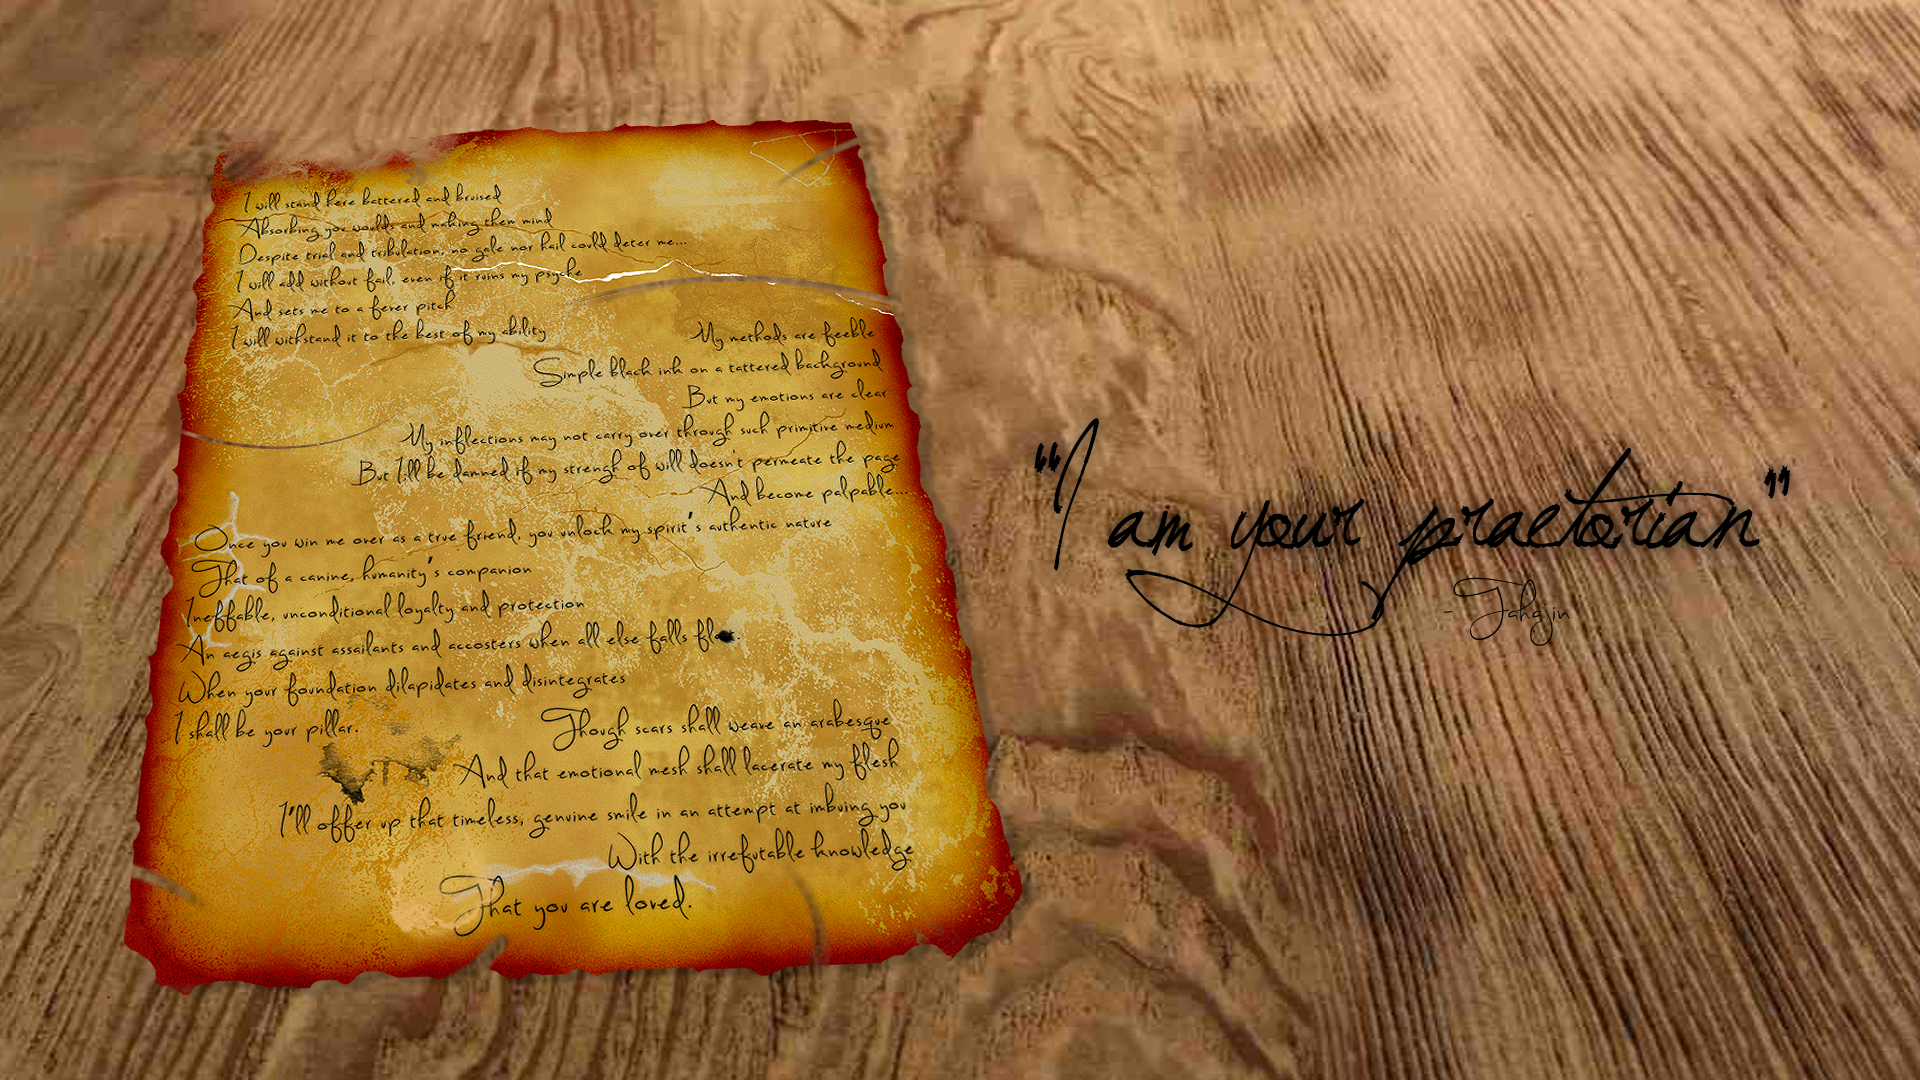 I will stand here battered and bruised
Absorbing you woulds and making them mind
Despite trial and tribulation, no gale nor hail could deter me...
I will add without fail, even if it ruins my psyche
And sets me to a fever pitch
I will withstand it to the best of my ability
My methods are feeble
Simple black ink on a tattered background
But my emotions are clear
My inflections may not carry over through such primitive medium
But I'll be damned if my strengh of will doesn't permeate the page
And become palpable...
Once you win me over as a true friend, you unlock my spirit's authentic nature
That of a canine, humanity's companion
Ineffable, unconditional loyalty and protection
An aegis against assailants and accosters when all else falls
When your foundation dilapidates and disintegrates
I shall be your pillar.
Though scars shall weave an arabesque
And that emotional mesh shall lacerate my flesh
I'll offer up that timeless, genuine smile in an attempt at imbuing you
With the irrefutable knowledge
That you are loved.
"I am your praetorian"
- Tahgjin